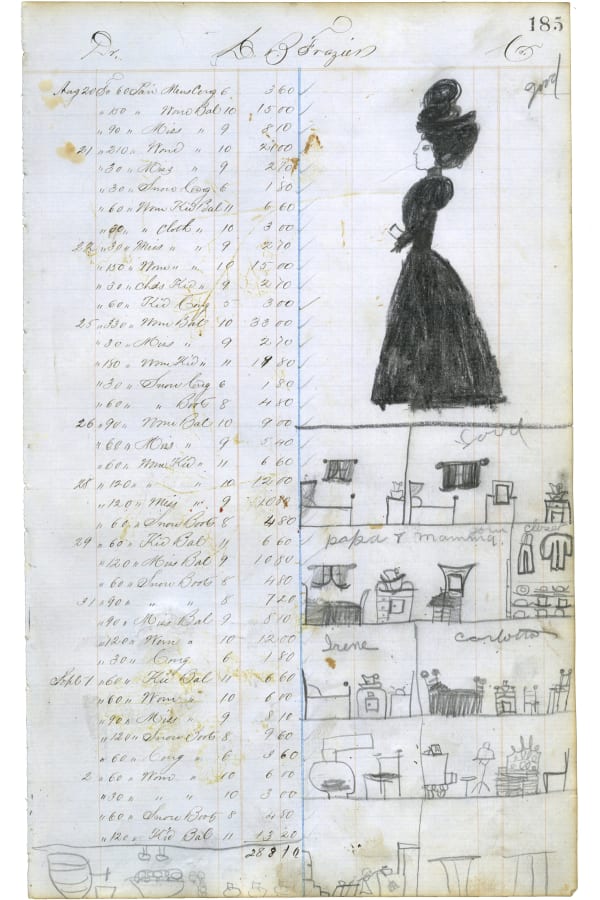 185
Dr. A B Frazier Cr.
good
Aug 20 To 60 Pair Mens Cong 6 3 60
" 150 " Wom Bal 10 15 00
" 90 " Miss " 9 8 10
21 " 210 " Wom " 10 21 00
" 30 " Miss " 9 2 70
" 30 " Snow Cong 6 1 80
" 60 " Wom Kid Bal 11 6 60
" 30 " " Cloth " 10 3 00
22 " 30 " Miss " 9 2 70
" 150 " Wom " " 10 15 00
" 30 " Chds Kid " 9 2 70
" 60 " Kid Cong 5 3 00
25 " 330 " Wom Bal 10 33 00
" 30 " Miss " 9 2 70
" 180 " Wom Kid " 11 19 80
" 30 " Snow Cong 6 1 80
" 60 " " Boot 8 4 80
26 " 90 " Wom Bal 10 9 00
" 60 " Miss " 9 5 40
" 60 " Wom Kid " 11 6 60
28 " 120 " " " 10 12 00
" 120 " Miss " 9 10 80
" 60 " Snow Boots 8 4 80
29 " 60 " Kid Bal 11 6 60
" 120 " Miss Bal 9 10 80
" 60 " Snow Boots 8 4 80
31 " 90 " " " 8 7 20
" 90 " Miss Bal 9 8 10
" 120 " Wom " 10 12 00
" 30 " Cong 6 1 80
Sept 1 " 60 " Kid Bal 11 6 60
" 60 " Wom " 10 6 00
" 90 " Miss " 9 8 10
" 120 " Snow Boots 8 9 60
" 60 " Cong " 6 3 60
2 " 60 " Wom " 10 6 00
" 30 " " " 10 3 00
" 60 " Snow Boots 8 4 80
" 120 " Kid Bal 11 13 20
288 10
good
papa & mamma room
closet
Irene